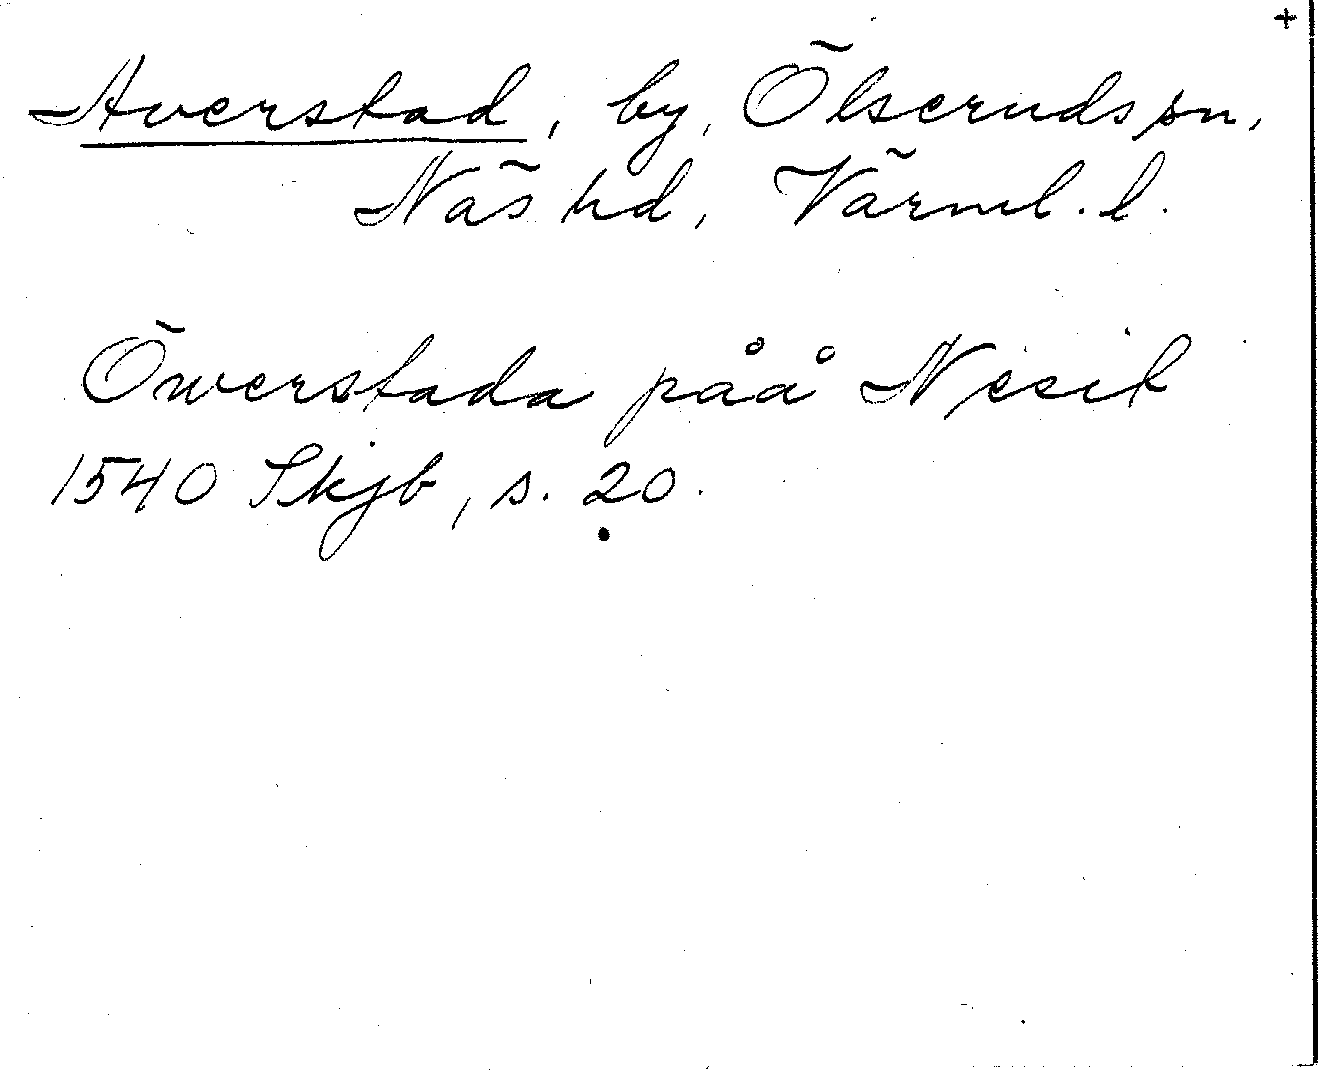 +
Averstad, by, Ölseruds sn,
Näs hd, Värml. l.
Öwerstada påå Nesit
1540 Skjb, s. 20.